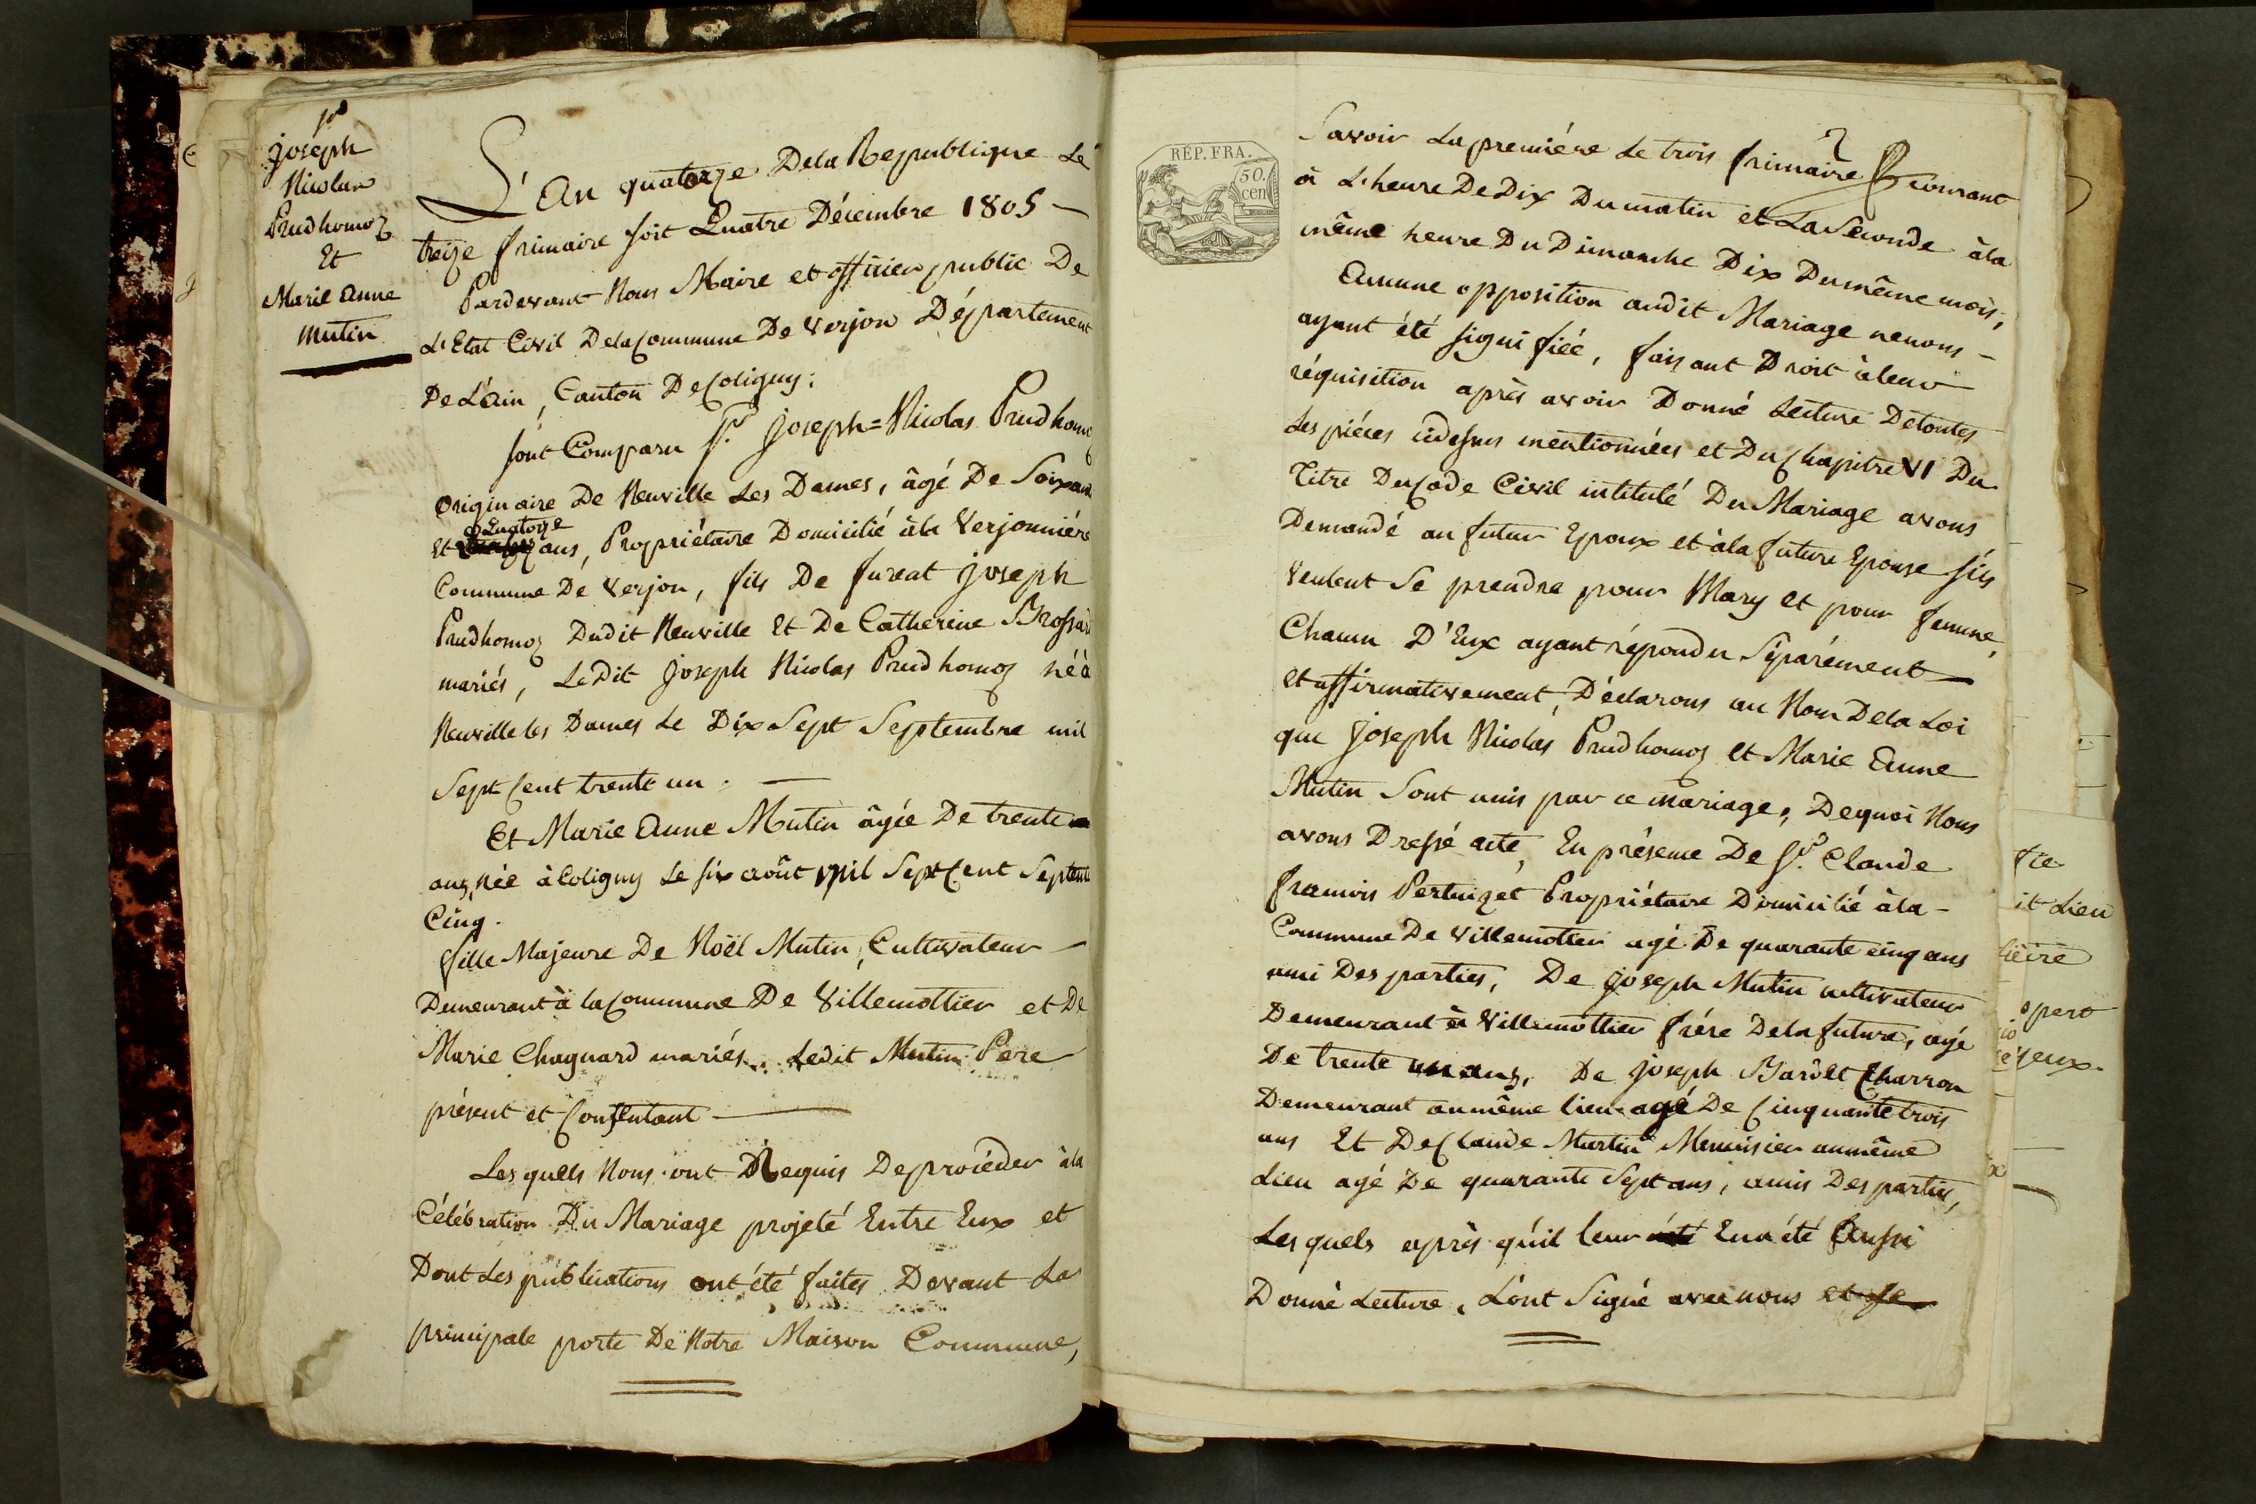 Sr
joseph
Nicolas
Prudhomoz
Et
Marie Anne
Mutin
L'An quatorze Dela Republique Le
treize frimaire soit Quatre Décembre 1805 —
Pardevant Nous Maire et officier public De
L'Etat Civil Dela Commune De Verjon Département
De L'ain, Canton De Coligny;
sont Comparu Sr. Joseph=Nicolas Prudhomoz
Originaire De Neuville Les Dames, âgé De Soixante
Quatorze
Et ans, Propriétaire Domicilié àla Verjonniére
Commune De Verjon, fils De fureat joseph
Prudhomoz Dudit Neuville Et De Catherine Brossard
mariés, LeDit Joseph Nicolas Prudhomoz né à
Neuville les Dames Le Dix Sept Septembre mil
Sept Cent trente un. —
Et Marie Anne Mutin âgée De trente
ans, née à Coligny Le six août mil Sept Cent Septente
Cinq.
fille Majeure De Noël Mutin, Cultivateur —
Demeurant à la Commune De Villemottier et De
Marie Chagnard mariés. Ledit Mutin Pere
présent et Consentant —
Les quels Nous ont Requis De procéder àla
Célébration Du Mariage projeté Entre Eux et
Dont Les publications ont été faites Devant La
principale porte De Notre Maison Commune,
RÉP. FRA.
50.
cen
Savoir La première Le trois frimaire courant
à L'heure De Dix Du matin et La Seconde àla
même heure Du Dimanche Dix Du même mois,
Aucune opposition audit Mariage nenous —
ayant été signifiée, faisant Droit àleur
réquisition après avoir Donné Lecture De toutes
Les piéces cidessus mentionnées et Du Chapitre VI Du
Titre Du Code Civil intitulé Du Mariage avons
Demandé au futur Epoux et àla future Epouse s'ils
Veulent Se prendre pour Mary et pour femme,
Chacun D'Eux ayant répondu Séparément —
et affirmativement, Déclarons au Nom Dela Loi
que Joseph Nicolas Prudhomoz et Marie Anne
Mutin Sont unis par ce mariage, Dequoi Nous
avons Dressé acte, En présence De Sr. Claude
francois Pertuizet Propriétaire Domicilié àla —
Commune De Villemottier agé De quarante cinq ans
ami Des parties, De joseph Mutin cultivateur
Demeurant à Villemottier frére Dela future, agé
De trente un ans, De joseph Barôlet Charron
Demeurant aumême lieu agé De Cinquante trois
ans Et De Claude Martin Menuisier aumême
Lieu agé De quarante Sept ans, amis Des parties,
Les quels après qu'il leur En a été Aussi
Donné Lecture, L'ont Signé avec nous et se
fie
it Lieu
spert
jeux.